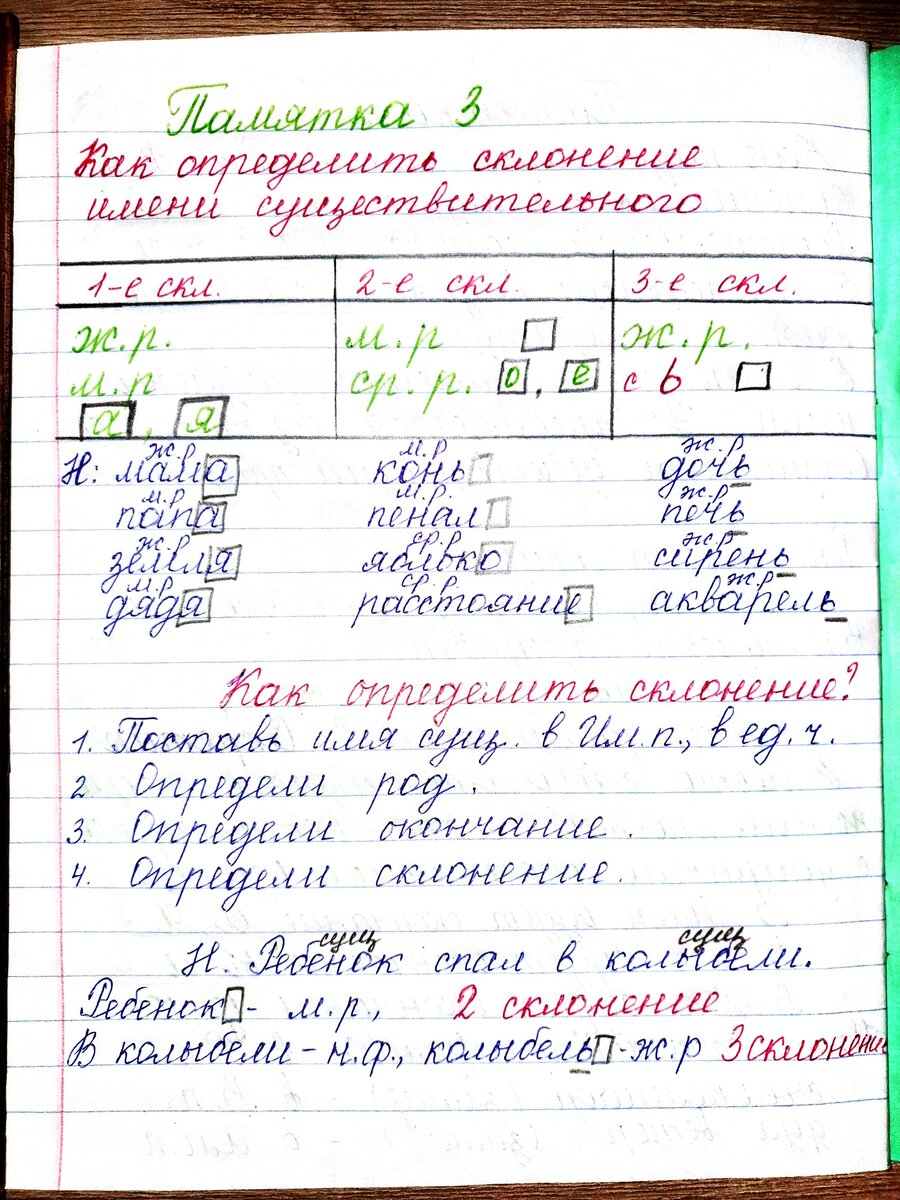 Памятка 3
Как определить склонение
имени существительного
1-е скл. 2-е скл. 3-е скл.
ж.р. м.р ж.р.
м.р ср.р. о, е с ь
а, я
ж.р м.р ж.р
Н: мама конь дочь
м.р м.р. ж.р
папа пенал печь
ж.р ср.р ж.р
земля яблоко сирень
м.р ср.р. ж.р
дядя расстояние акварель
Как определить склонение?
1. Поставь имя сущ. в Им.п., в ед.ч.
2 Определи род.
3. Определи окончание.
4. Определи склонение.
сущ сущ
Н: Ребенок спал в колыбели.
Ребенок - м.р., 2 склонение
В колыбели - н.ф., колыбель - ж.р 3 склонение